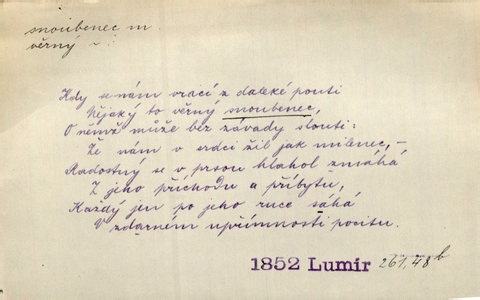 snoubenec m.
věrný
Kdy se nám vrací z daleké pouti
Nějaký to věrný snoubenec,
O němž může bez závady slouti:
Že nám v srdci žil jak milenec, –
Radostný se v prsou hlahol zmáhá
Z jeho příchodu a příbytu,
Každý jen po jeho ruce sáhá
V zdárném upřímnosti pocitu.
1852 Lumír 261, 48 b